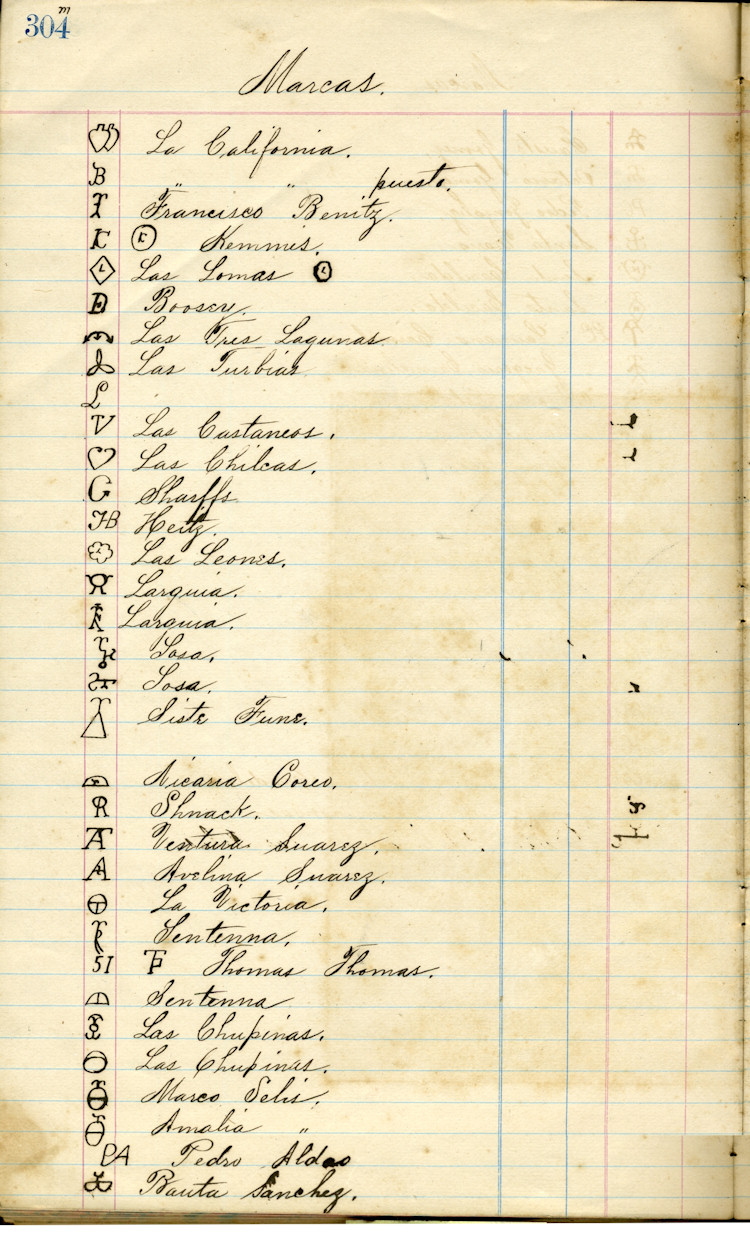 304 m
Marcas.
La California.
B " " puesto.
Francisco Benitz.
Kemmis.
L Las Lomas L
E Boosey.
Las Tres Lagunas
Las Turbias
L
V Las Castaneos.
Las Chilcas.
G Sharffs
HB Heitz.
Las Leones.
Larguia.
Larguia.
Sosa.
Sosa.
Siste Fune.
Nicaria Coreo.
R Shnack.
A Ventura Suarez.
A Avelina Suarez.
La Victoria.
Sentenna.
51 TP Thomas Thomas.
Sentenna
Las Chupinas.
Las Chupinas.
Marco Selis.
Amalia "
PA Pedro Aldao
Bauta Sanchez.